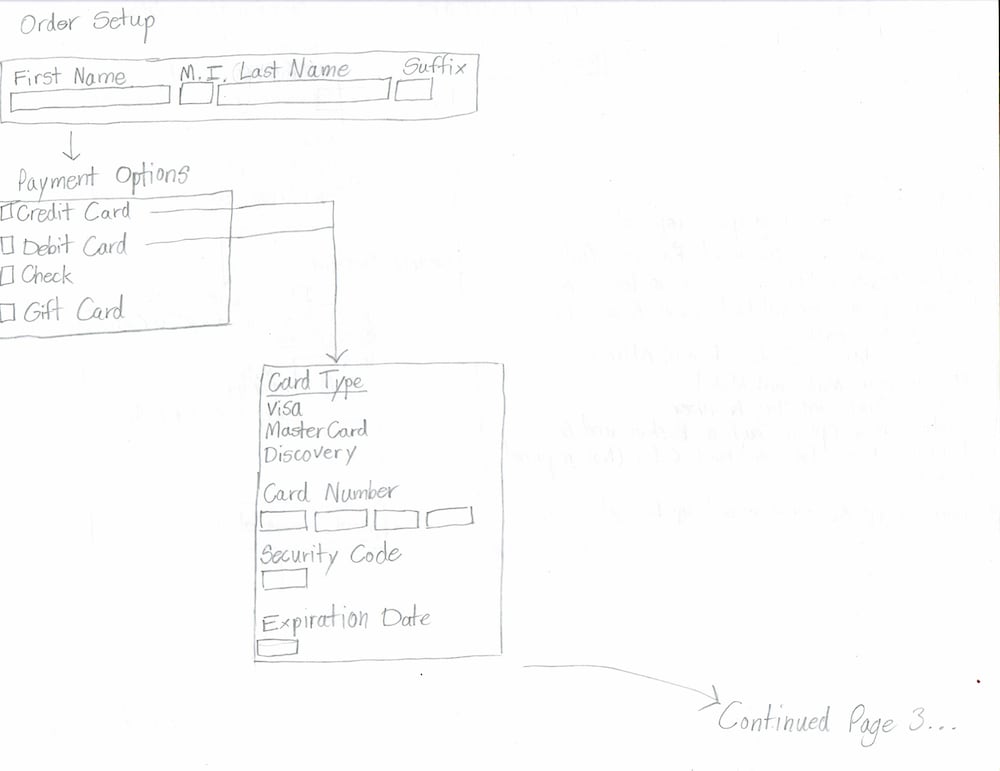 Order Setup
First Name M.I. Last Name Suffix
Payment Options
Credit Card
Debit Card
Check
Gift Card
Card Type
Visa
MasterCard
Discovery
Card Number
Security Code
Expiration Date
Continued Page 3...